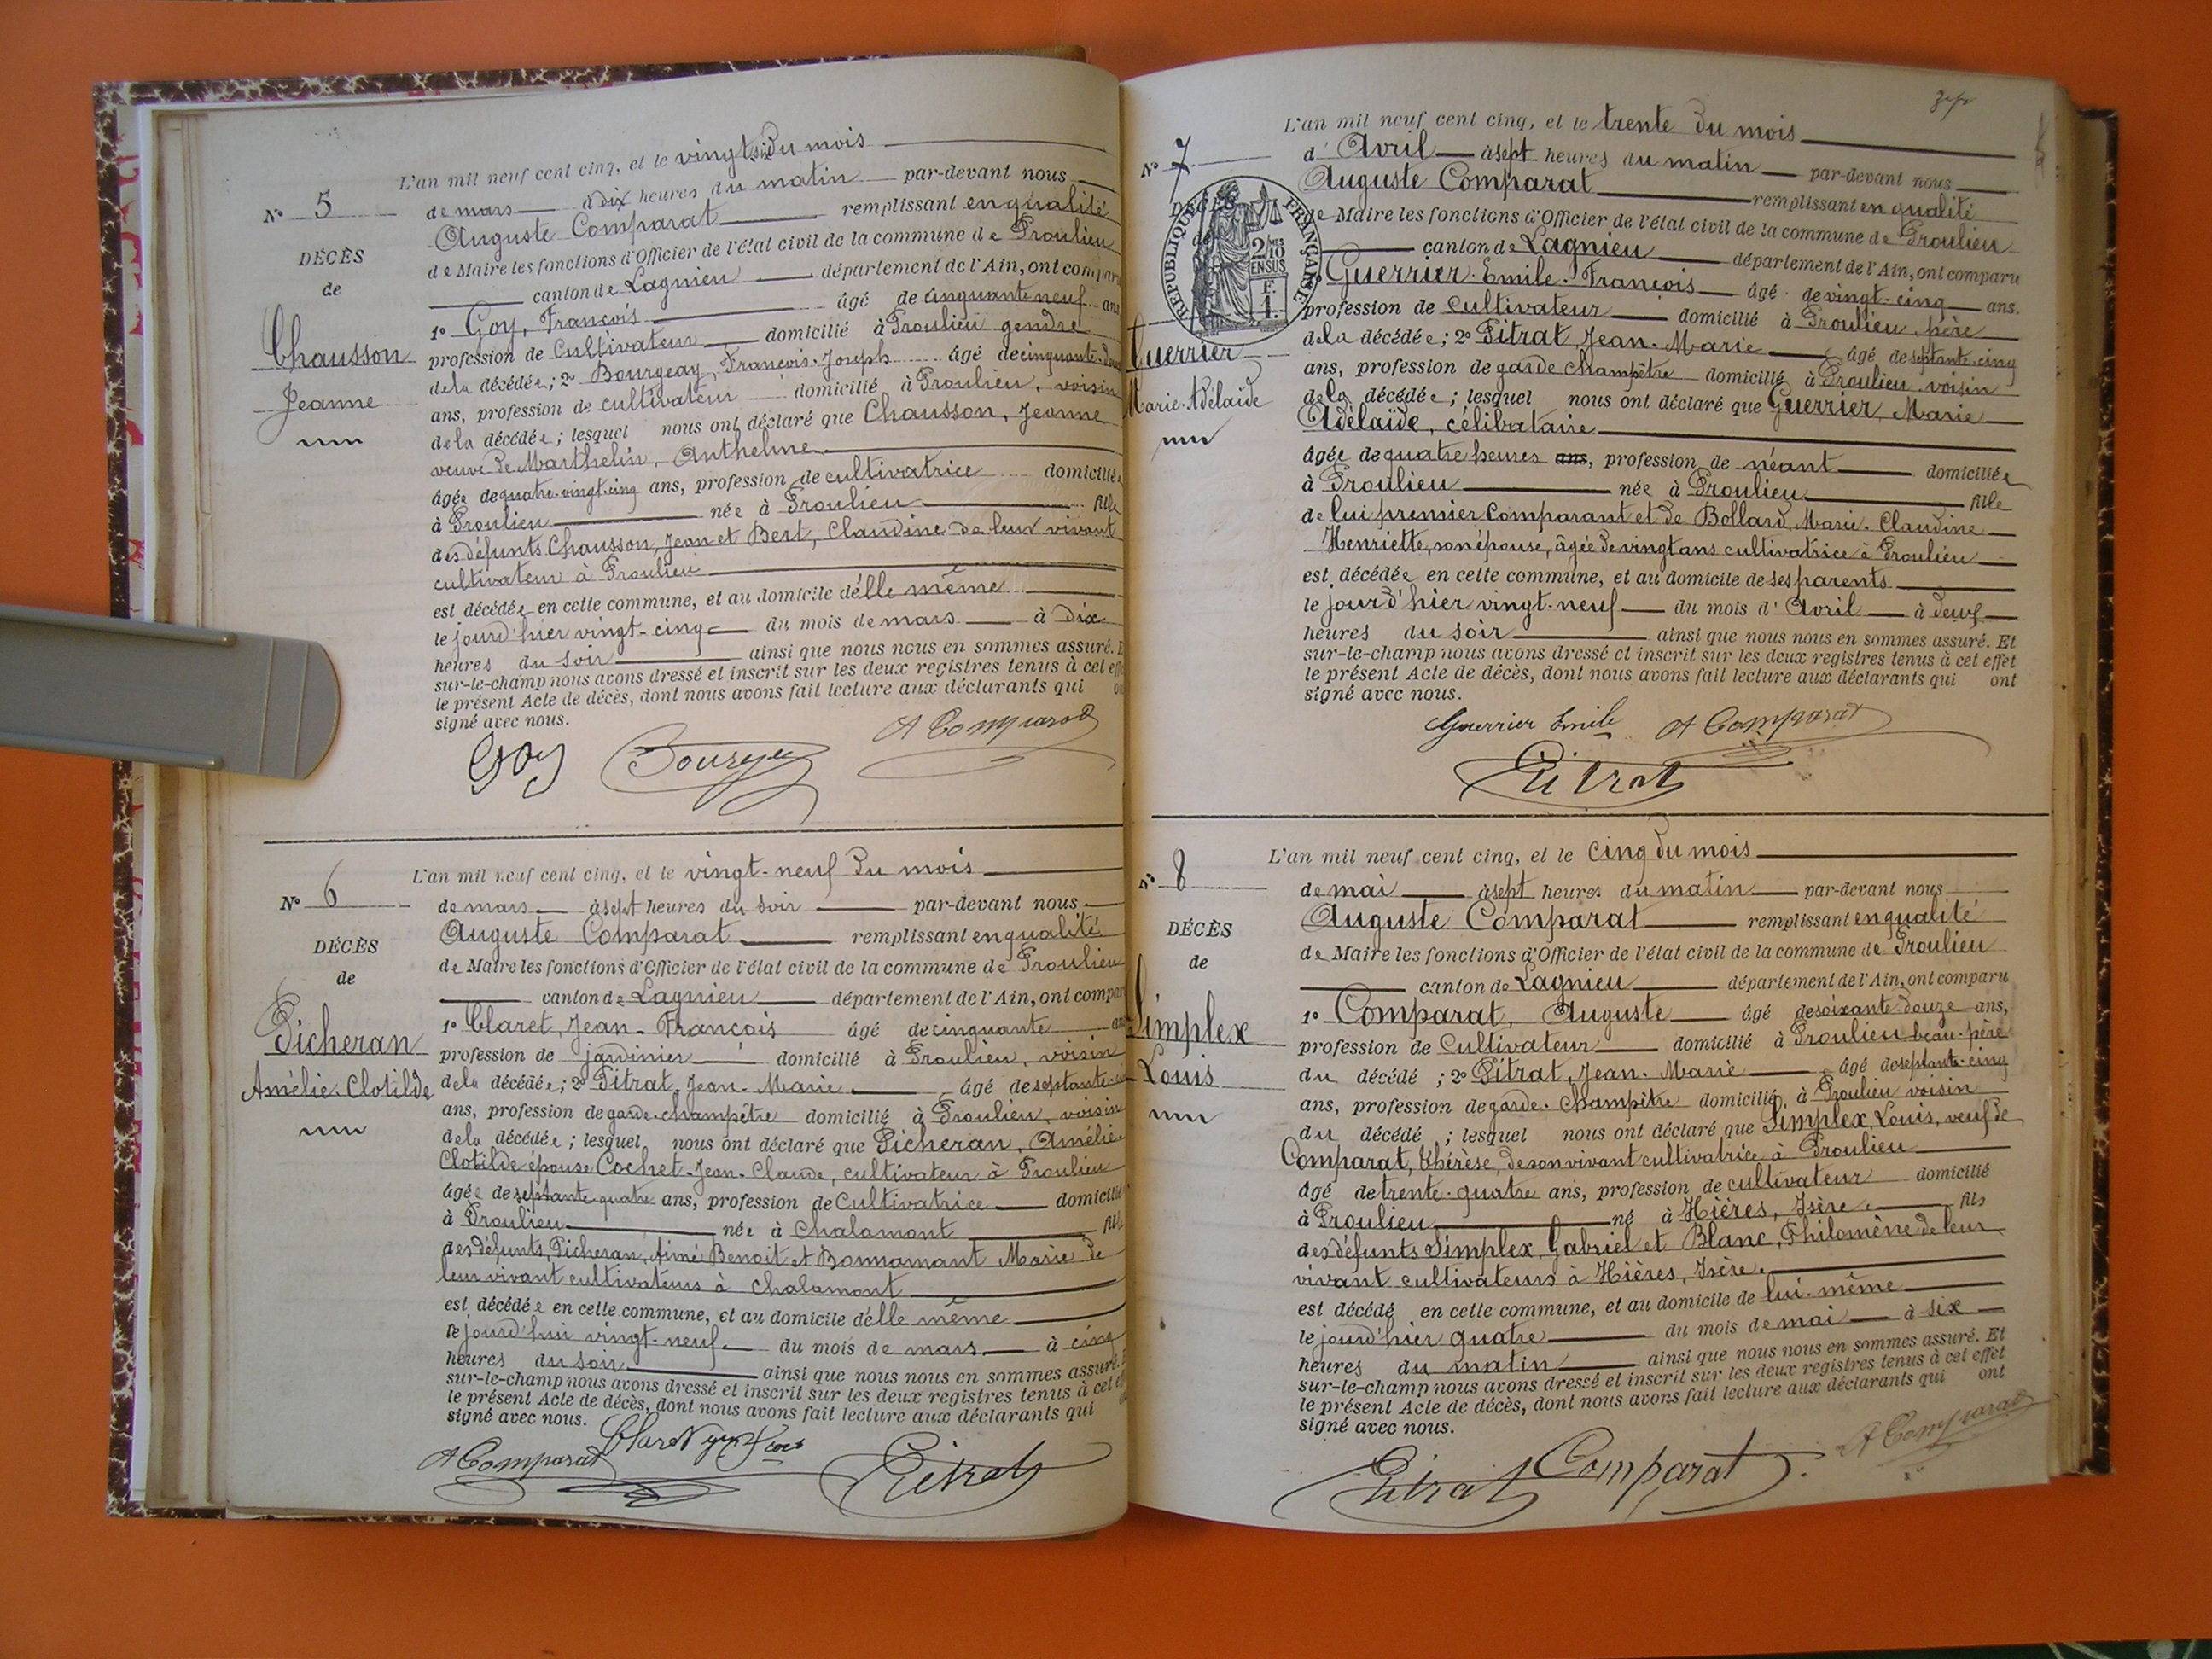 L'an mil neuf cent cinq, et le vingt six du mois
N° 5
de mars à dix heures du matin par-devant nous
Auguste Comparat remplissant en qualité
DÉCÈS
de Maire les fonctions d'Officier de l'état civil de la commune de Proulieu
de
canton de Lagnieu département de l'Ain, ont comparu
1° Goy, François âgé de cinquante neuf ans
Chausson
profession de Cultivateur domicilié à Proulieu gendre
Jeanne
de la décédée; 2° Bourgeay, François-Joseph âgé de cinquante
ans, profession de cultivateur domicilié à Proulieu, voisin
de la décédée; lesquel nous ont déclaré que Chausson, Jeanne
veuve de Marthelin, Anthelme
âgée de quatre-vingt-cinq ans, profession de cultivatrice domiciliée
à Proulieu née à Proulieu fille
des défunts Chausson, Jean et Bert, Claudine de leur vivant
cultivateur à Proulieu
est décédée en cette commune, et au domicile d'elle même
le jourd'hier vingt-cinq du mois de mars à dix
heures du soir ainsi que nous nous en sommes assuré. E
sur-le-champ nous avons dressé et inscrit sur les deux registres tenus à cet effe
le présent Acte de décès, dont nous avons fait lecture aux déclarants qui
signé avec nous.
Goy Bourgeay A Comparat
L'an mil neuf cent cinq, et le vingt-neuf du mois
N° 6
de mars à sept heures du soir par-devant nous
Auguste Comparat remplissant en qualité
DÉCÈS
de Maire les fonctions d'Officier de l'état civil de la commune de Proulieu
de
canton de Lagnieu département de l'Ain, ont compar
1° Claret, Jean-François âgé de cinquante ans
Picheran
profession de jardinier domicilié à Proulieu, voisin
Amélie-Clotilde
de la décédée; 2° Pitrat, Jean-Marie âgé de septante-
ans, profession de garde-champêtre domicilié à Proulieu, voisin
de la décédée; lesquel nous ont déclaré que Picheran, Amélie-
Clotilde épouse Cochet-Jean-Claude, cultivateur à Proulieu
âgée de septante-quatre ans, profession de Cultivatrice domicilié
à Proulieu née à Chalamont fille
des défunts, Picheran, Aimé Benoit et Bonnamant Marie de
leur vivant cultivateurs à Chalamont
est décédée en cette commune, et au domicile d'elle même
le jourd'hui vingt-neuf du mois de mars à cinq
heures du soir ainsi que nous nous en sommes assuré.
sur-le-champ nous avons dressé et inscrit sur les deux registres tenus à cet
le présent Acte de décès, dont nous avons fait lecture aux déclarants qui
signé avec nous.
A Comparat Claret Pitrat
L'an mil neuf cent cinq, et le trente du mois
N° 7
d'Avril à sept heures du matin par-devant nous
Auguste Comparat remplissant en qualité
DÉCÈS
de Maire les fonctions d'Officier de l'état civil de la commune de Proulieu
de
RÉPUBLIQUE FRANÇAISE
2/10 EN SUS
F. 1.
canton de Lagnieu département de l'Ain, ont comparu
Guerrier-Emile-François âgé de vingt-cinq ans.
profession de Cultivateur domicilié à Proulieu, père
Guerrier
de la décédée; 2° Pitrat, Jean-Marie âgé de septante-cinq
Marie-Adélaïde
ans, profession de garde champêtre domicilié à Proulieu voisin
de la décédée; lesquel nous ont déclaré que Guerrier, Marie
Adélaïde, célibataire
âgée de quatre heures ans, profession de néant domiciliée
à Proulieu née à Proulieu fille
de lui premier Comparant et de Bollard, Marie-Claudine
Henriette, son épouse, âgée de vingt ans cultivatrice à Proulieu
est décédée en cette commune, et au domicile de ses parents
le jourd'hier vingt-neuf du mois d'Avril à deux
heures du soir ainsi que nous nous en sommes assuré. Et
sur-le-champ nous avons dressé et inscrit sur les deux registres tenus à cet effet
le présent Acte de décès, dont nous avons fait lecture aux déclarants qui ont
signé avec nous.
Guerrier Emile A Comparat
Pitrat
L'an mil neuf cent cinq, et le cinq du mois
N° 8
de mai à sept heures du matin par-devant nous
Auguste Comparat remplissant en qualité
DÉCÈS
de Maire les fonctions d'Officier de l'état civil de la commune de Proulieu
de
canton de Lagnieu département de l'Ain, ont comparu
1° Comparat, Auguste âgé de soixante-douze ans,
Simplex
profession de Cultivateur domicilié à Proulieu beau-père
Louis
du décédé; 2° Pitrat, Jean-Marie âgé de septante-cinq
ans, profession de garde-Champêtre domicilié, à Proulieu voisin
du décédé; lesquel nous ont déclaré que Simplex, Louis, veuf de
Comparat, Thérèse, de son vivant cultivatrice à Proulieu
âgé de trente-quatre ans, profession de cultivateur domicilié
à Proulieu né à Hières, Isère. fils
des défunts Simplex, Gabriel et Blanc, Philomène de leur
vivant cultivateurs à Hières, Isère.
est décédé en cette commune, et au domicile de lui-même
le jourd'hier quatre du mois de mai à six
heures du matin ainsi que nous nous en sommes assuré. Et
sur-le-champ nous avons dressé et inscrit sur les deux registres tenus à cet effet
le présent Acte de décès, dont nous avons fait lecture aux déclarants qui ont
signé avec nous.
Pitrat Comparat A Comparat